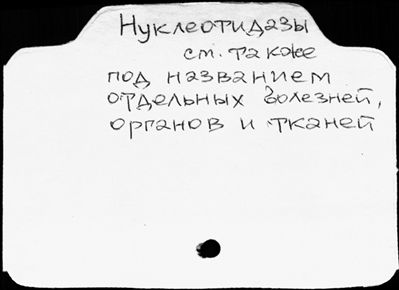 Нуклеотидазы
см. также
под названием
отдельных болезней,
органов и тканей